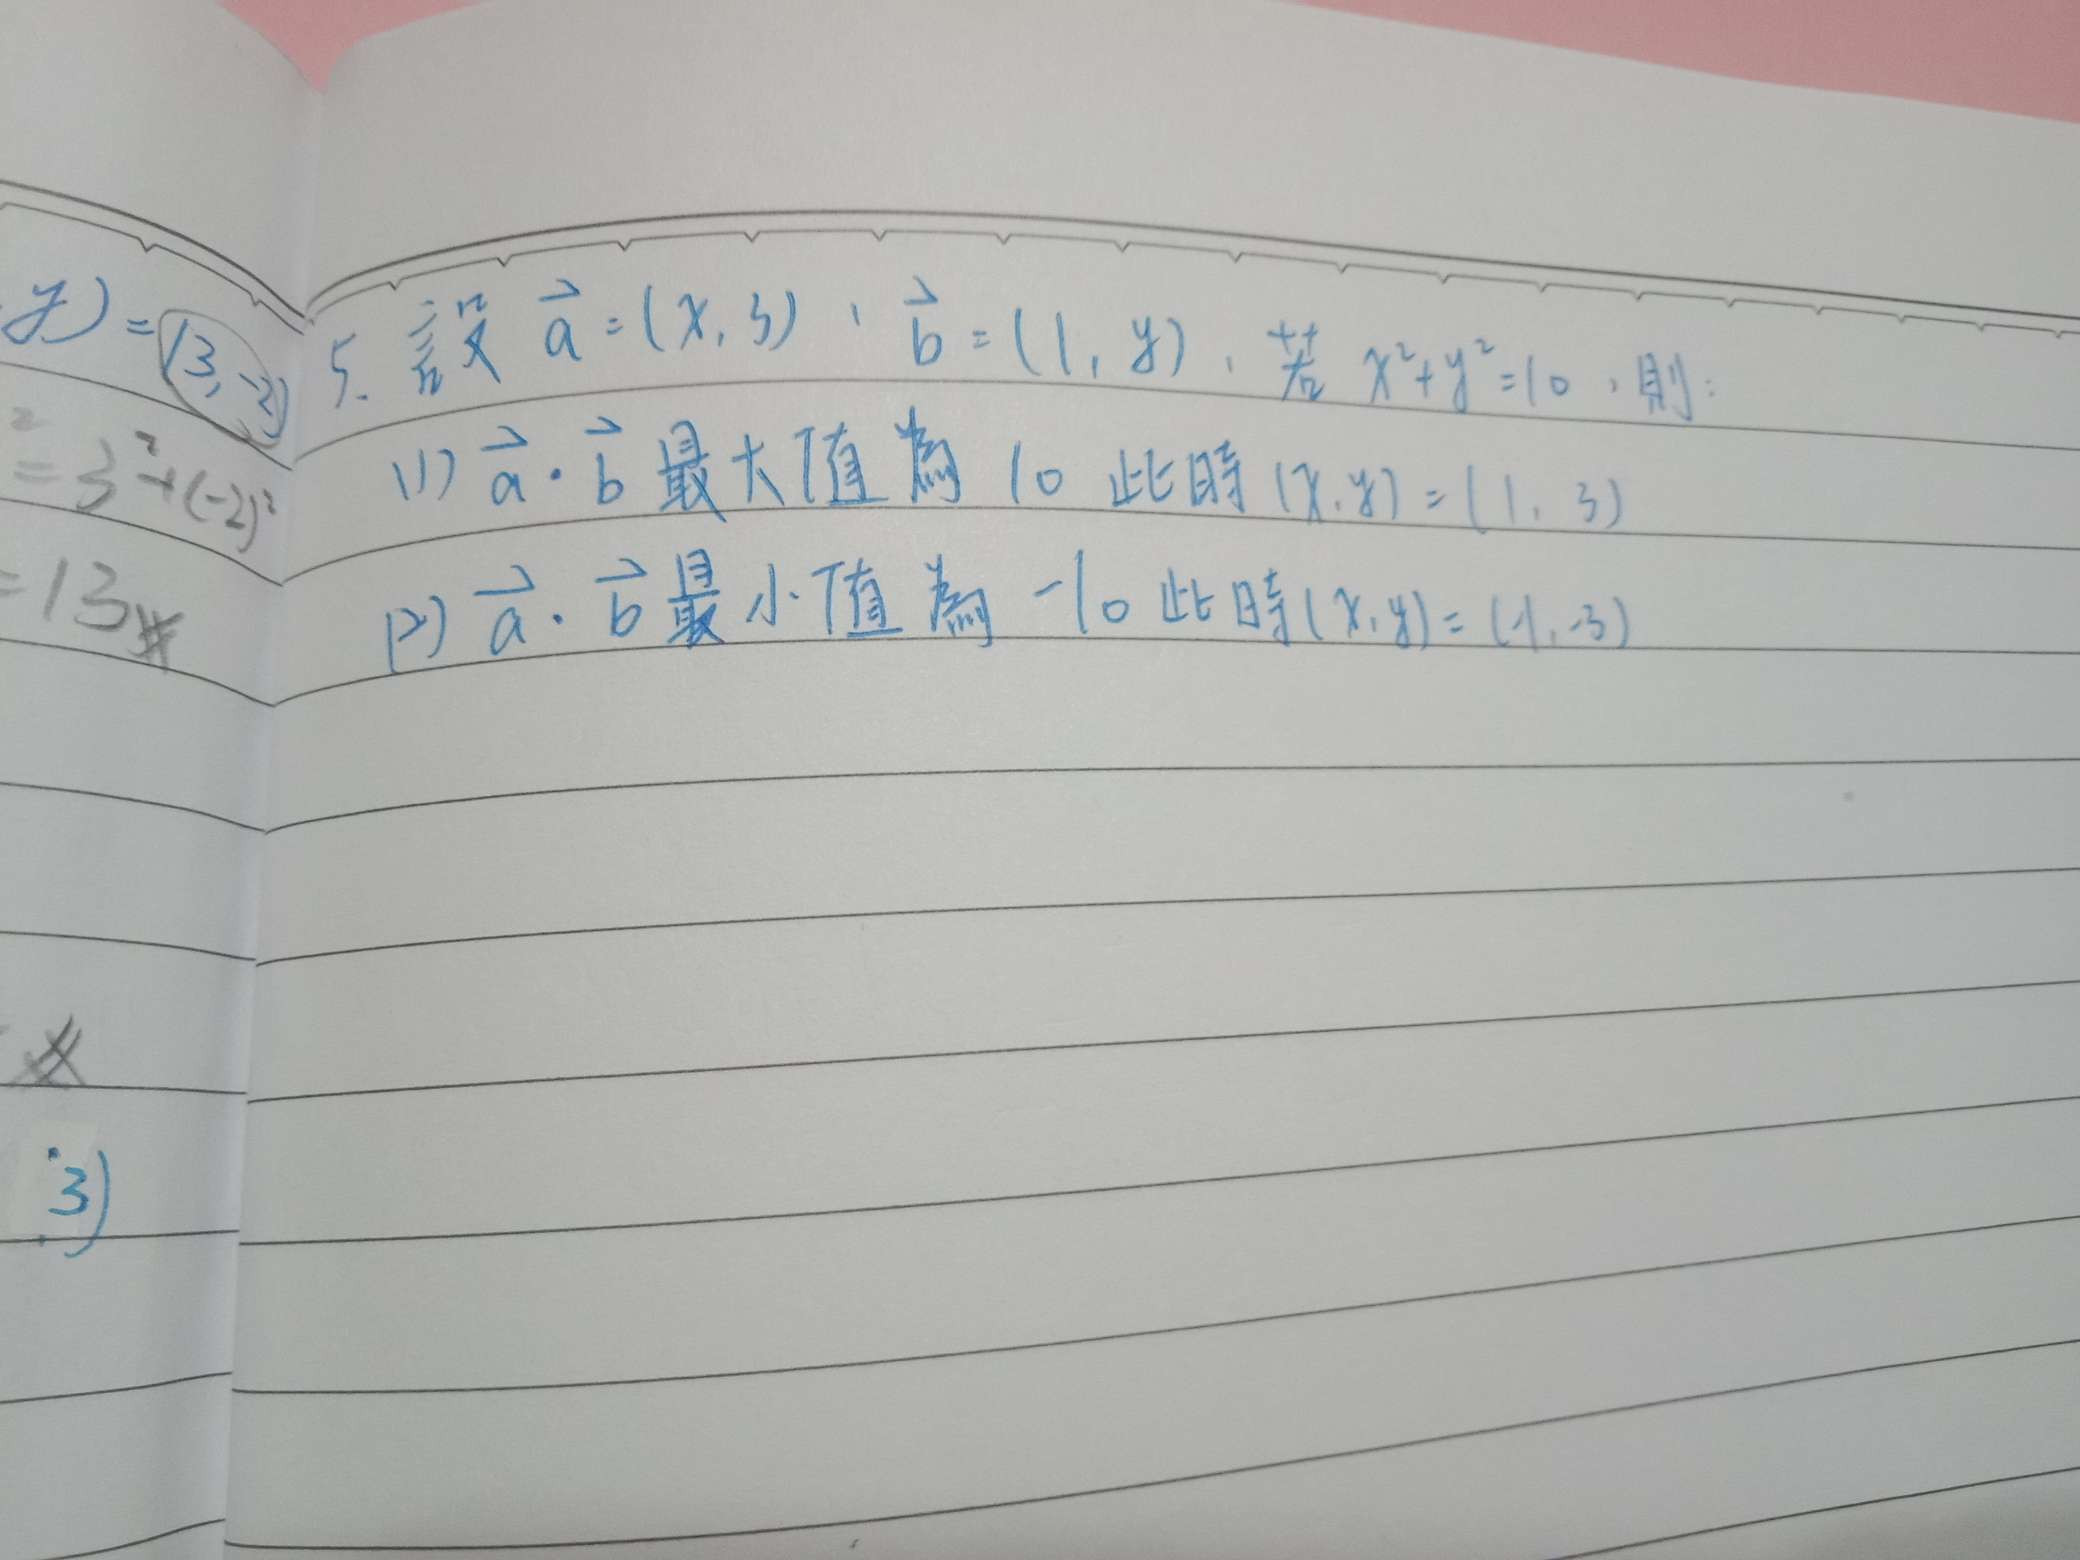 y) = (3, -2)
² = 3² + (-2)²
= 13#
3)
5. 設 a⃗ = (x, 3)、b⃗ = (1, y),若 x² + y² = 10,則:
(1) a⃗・b⃗ 最大值為 10 此時 (x, y) = (1, 3)
(2) a⃗・b⃗ 最小值為 -10 此時 (x, y) = (-1, -3)